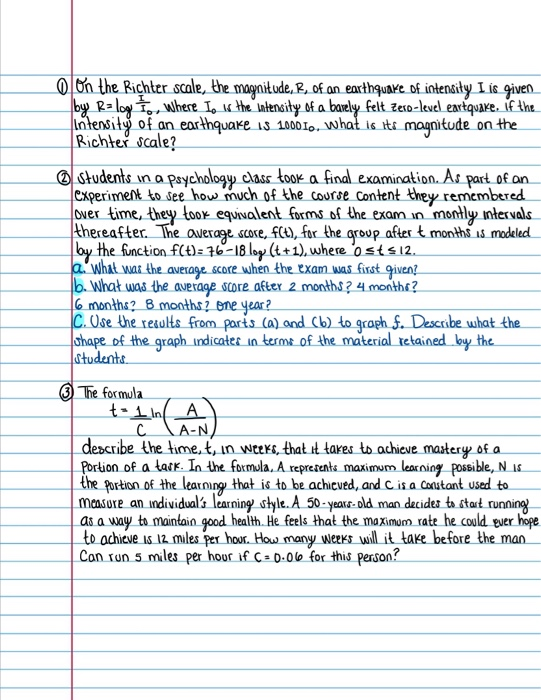 ① On the Richter scale, the magnitude, R, of an earthquake of intensity I is given
by R = log I/I₀, where I₀ is the intensity of a barely felt zero-level eartquake. If the
intensity of an earthquake is 1000I₀, what is its magnitude on the
Richter scale?
② Students in a psychology class took a final examination. As part of an
experiment to see how much of the course content they remembered
over time, they took equivalent forms of the exam in montly intervals
thereafter. The average score, f(t), for the group after t months is modeled
by the function f(t) = 76-18 log (t+1), where 0 ≤ t ≤ 12.
a. What was the average score when the exam was first given?
b. What was the average score after 2 months? 4 months?
6 months? 8 months? One year?
C. Use the results from parts (a) and (b) to graph f. Describe what the
shape of the graph indicates in terms of the material retained by the
students.
③ The formula
t = 1/C ln(A/A-N)
describe the time, t, in weeks, that it takes to achieve mastery of a
portion of a task. In the formula, A represents maximum learning possible, N is
the portion of the learning that is to be achieved, and C is a constant used to
measure an individual's learning style. A 50-years-old man decides to start running
as a way to maintain good health. He feels that the maximum rate he could ever hope
to achieve is 12 miles per hour. How many weeks will it take before the man
Can run 5 miles per hour if C = 0.06 for this person?